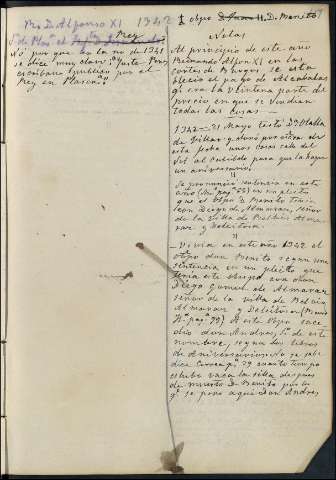 Rº D. Alfonso XI 1342
Rey
Nó por que en la no de 1341
se dice muy claro: "Yuste Perez
escribano publico por el
Rey en Plasenª.
1 obpo D. Benito
Notas
Al principio de este año
Reinando Alfonso XI en las
cortes de Burgos se esta
bleció el pago de Alcabalas
qª era la veintena parte del
precio en que se vendian
todas las cosas
1342 - 31 Mayo testó Dª Olalla
de Villar
esta fecha unas casas calle del
Sol al cabildo para que la hagan
un aniversario.
Se pronunció sentencia en este
año en un pleito
que el obpo D. Benito tenia
con Diego de Almaraz, señor
de la Villa de Belvis Alma
raz y Deleitosa.
Vivia en este año 1342 el
obpo don Benito segun una
sentencia en un pleito que
tenia este obispo con don
Diego Gomez de Almaraz
señor de la villa de Belvis
Almaraz y Deleitosa
A este Obpo suce
dio don Andres, 1º de este
nombre, segun los libros
de Aniversarios. No se sabe
dice Correa pª 79 cuanto tiempo
estubo vaca la silla despues
de muerto D. Benito
qª se pone aqui Don Andres